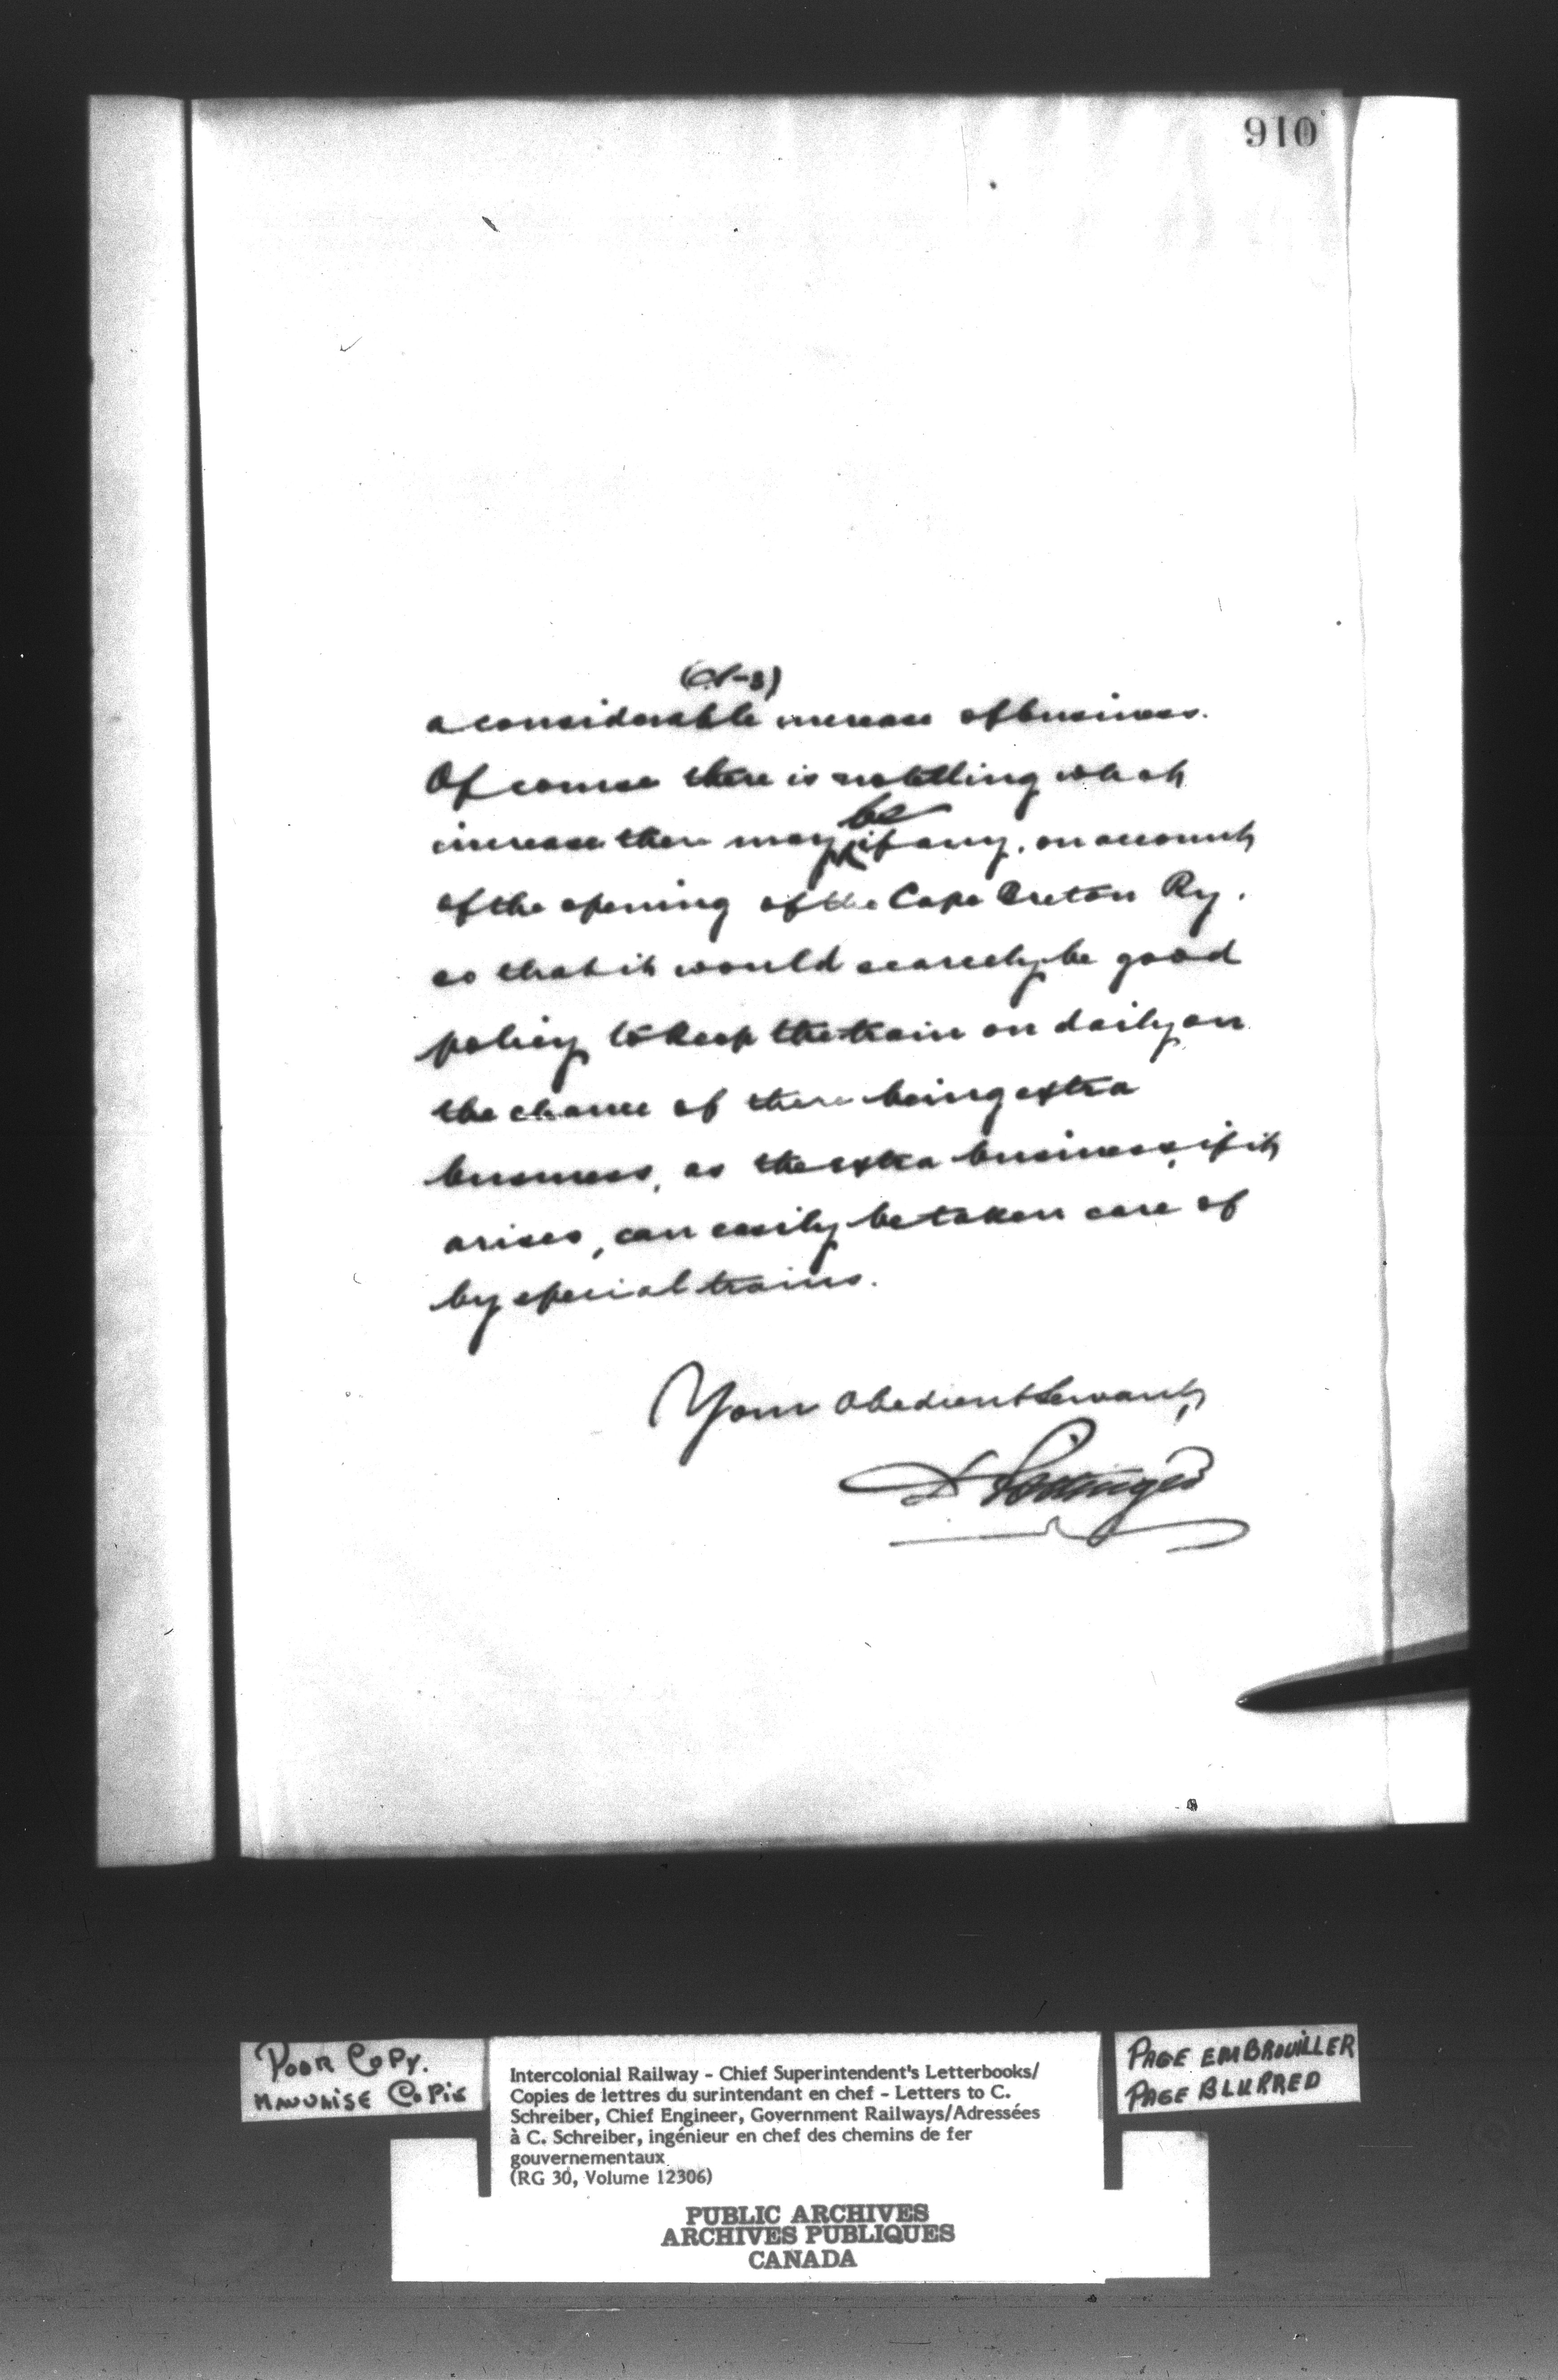 910
a considerable increase of business.
Of course there is no telling what
increase there may be if any, on account
of the opening of the Cape Breton Ry.
so that it would scarcely be good
policy to keep the train on daily on
the chance of there being extra
business, as the extra business, if it
arises, can easily be taken care of
by special trains.
Your Obedient Servant,
D Pottinger
POOR COPY.
MAUVAISE COPIE
Intercolonial Railway - Chief Superintendent's Letterbooks/
Copies de lettres du surintendant en chef - Letters to C.
Schreiber, Chief Engineer, Government Railways/Adressées
à C. Schreiber, ingénieur en chef des chemins de fer
gouvernementaux
(RG 30, Volume 12306)
PAGE EMBROUILLER
PAGE BLURRED
PUBLIC ARCHIVES
ARCHIVES PUBLIQUES
CANADA